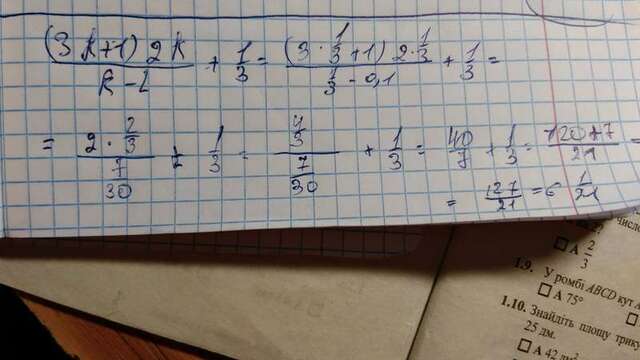 (3k+1)2k/k-l + 1/3 = (3·1/3+1)2·1/3 / 1/3-0,1 + 1/3 =
= 2·2/3 / 7/30 + 1/3 = 4/3 / 7/30 + 1/3 = 40/7 + 1/3 = 120+7/21 =
= 127/21 = 6 1/21
A 2/3
1.9. У ромбі ABCD кут
A 75°
1.10. Знайдіть площу
25 дм.
A 42 дм²